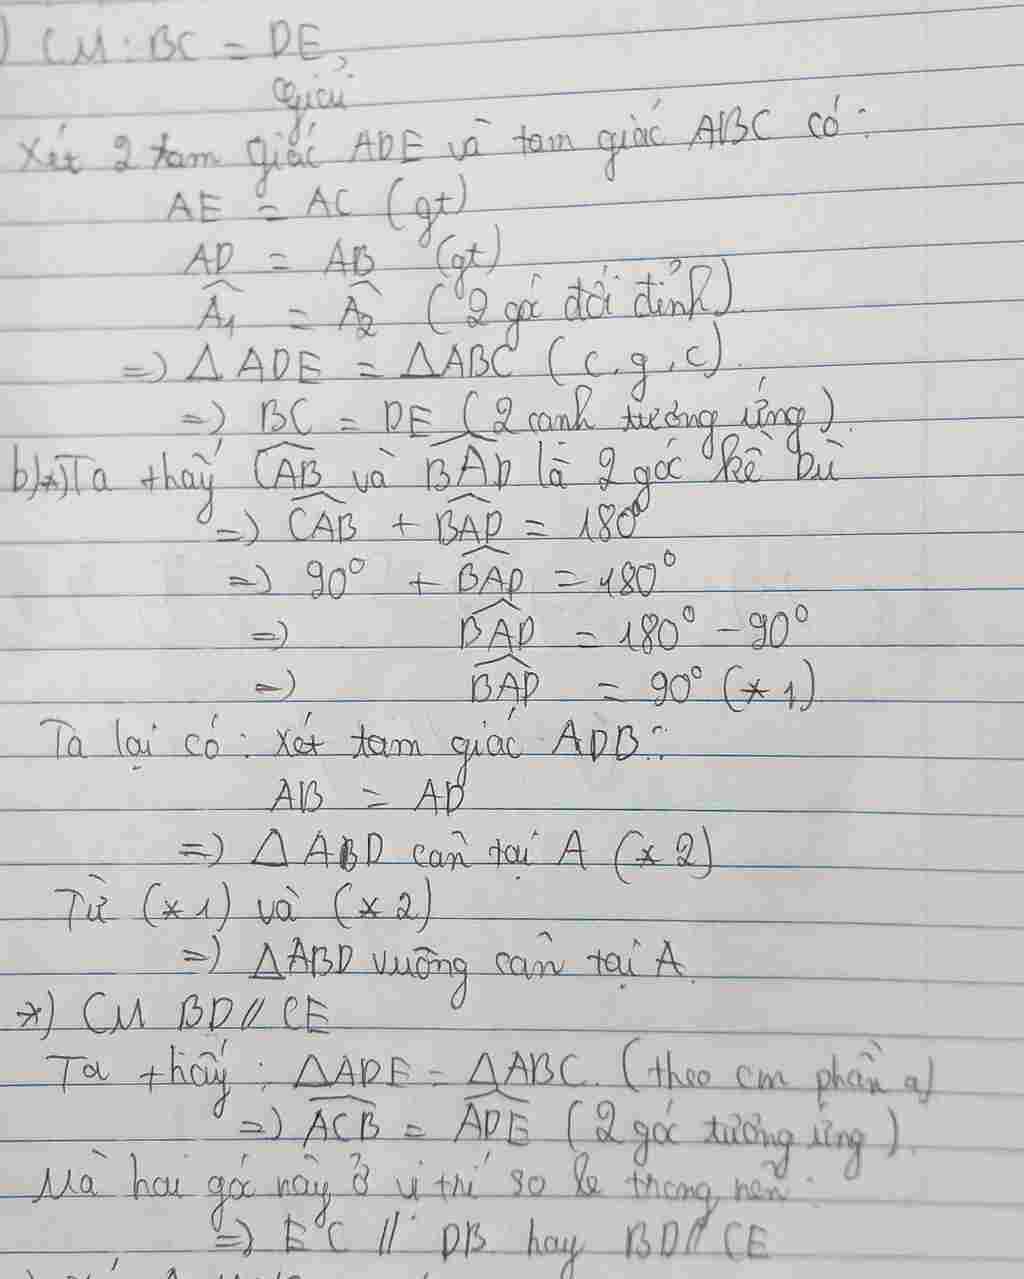 ) CM : BC = DE
Giải
Xét 2 tam giác ADE và tam giác ABC có :
AE = AC (gt)
AD = AB (gt)
Â1 = Â2 (2 góc đối đỉnh)
=) Δ ADE = ΔABC (c.g.c).
=) BC = DE (2 cạnh tương ứng).
b)*)Ta thấy \widehat{CAB} và \widehat{BAD} là 2 góc kề bù
=) \widehat{CAB} + \widehat{BAD} = 180°
=) 90° + \widehat{BAD} = 180°
=) \widehat{BAD} = 180° - 90°
=) \widehat{BAD} = 90° (* 1)
Ta lại có : xét tam giác ADB :
AB = AD
=) Δ ABD cân tại A (* 2)
Từ (* 1) và (* 2)
=) ΔABD vuông cân tại A.
*) CM BD // CE
Ta thấy : ΔADE = ΔABC. (theo cm phần a)
=) \widehat{ACB} = \widehat{ADE} (2 góc tương ứng).
Mà hai góc này ở vị trí so le trong nên :
=) EC // DB hay BD // CE